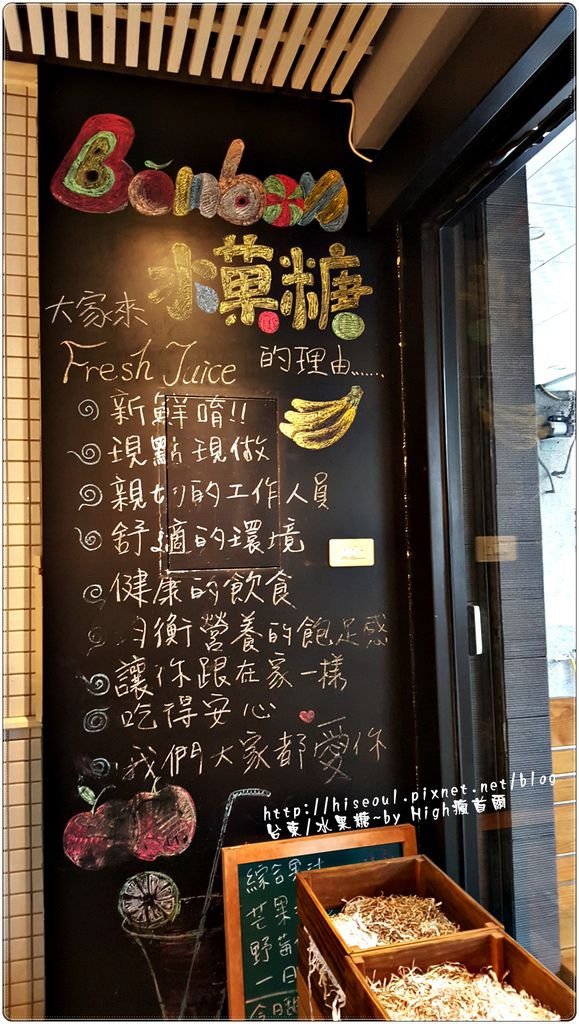 Bonbon
水菓糖
大家來
Fresh Juice 的理由......
新鮮唷!!
現點現做
親切的工作人員
舒適的環境
健康的飲食
均衡營養的飽足感
讓你跟在家一樣
吃得安心
我們大家都愛你
http://hiseoul.pixnet.net/blog
台東/水果糖~by High瘋首爾
綜合果汁
芒果
野莓
一日
今日